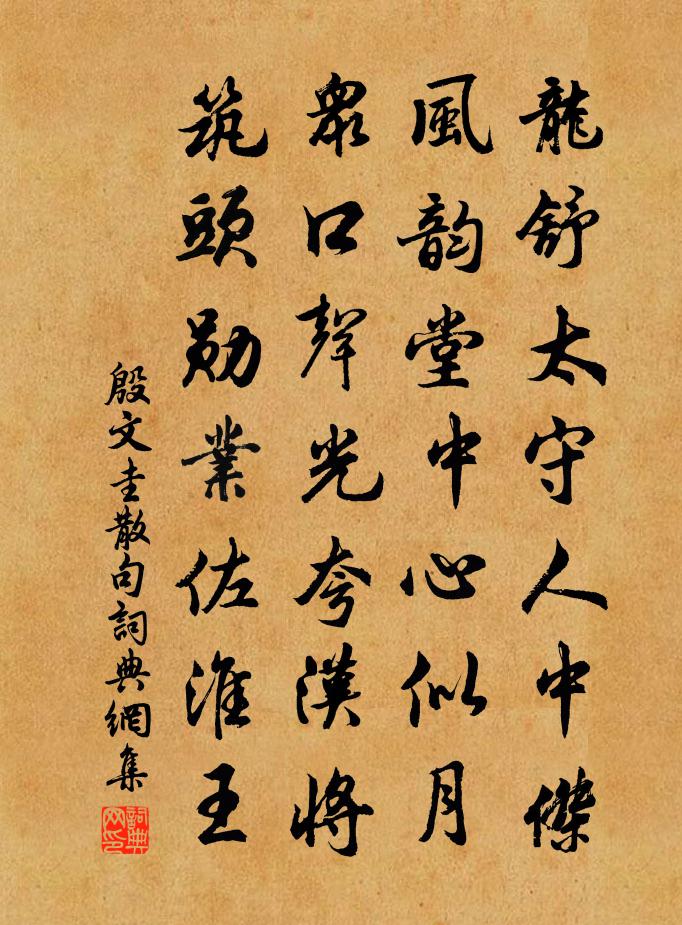 龍舒太守人中傑
風韵堂中心似月
眾口聲光夸漢將
筑頭勛業佐淮王
殷文圭散句詞典網集
詞典网印